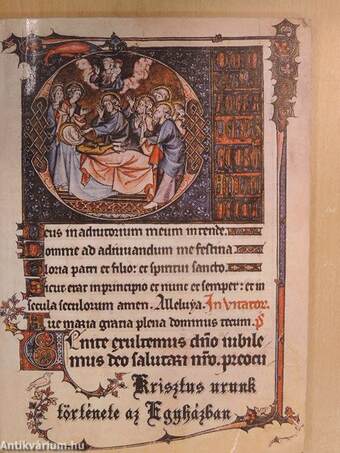 eus in adiutorium meum intende.
omine ad adiuuandum me festina
loria patri et filio: et spiritui sancto.
icut erat in principio et nunc et semper: et in
secula seculorum amen. Alleluya. Inuitator.
ue maria gratia plena dominus tecum. p̄s
enite exultemus dño iubile
mus deo salutari nr̄o. preocu
Krisztus urunk
története az Egyházban
antikvárium.hu